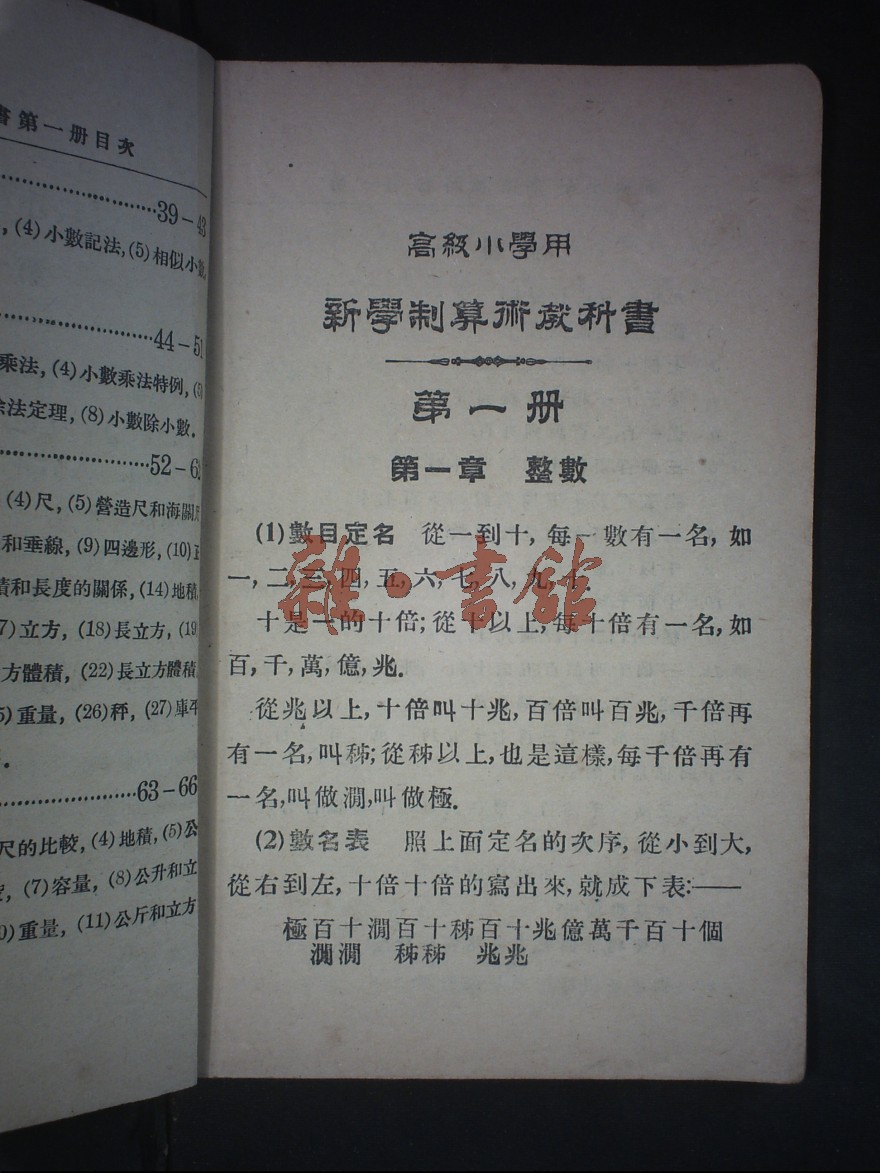 書第一册目次
39－43
，(4)小數記法，(5)相似小數
44－51
乘法，(4)小數乘法特例，(5)
除法定理，(8)小數除小數．
52－6
(4)尺，(5)營造尺和海關尺
和垂線，(9)四邊形，(10)正
積和長度的關係，(14)地積
7)立方，(18)長立方，(19)
方體積，(22)長立方體積
5)重量，(26)秤，(27)庫平
63－66
尺的比較，(4)地積，(5)公
(7)容量，(8)公升和立
0)重量，(11)公斤和立方
高級小學用
新學制算術教科書
第一册
第一章　整數
(1)數目定名　從一到十，每一數有一名，如
一，二，三，四，五，六，七，八，九，十．
十是一的十倍；從十以上，每十倍有一名，如
百，千，萬，億，兆．
從兆以上，十倍叫十兆，百倍叫百兆，千倍再
有一名，叫秭；從秭以上，也是這樣，每千倍再有
一名，叫做澗，叫做極．
(2)數名表　照上面定名的次序，從小到大，
從右到左，十倍十倍的寫出來，就成下表：——
極百十澗百十秭百十兆億萬千百十個
澗澗　秭秭　兆兆
雜·書館